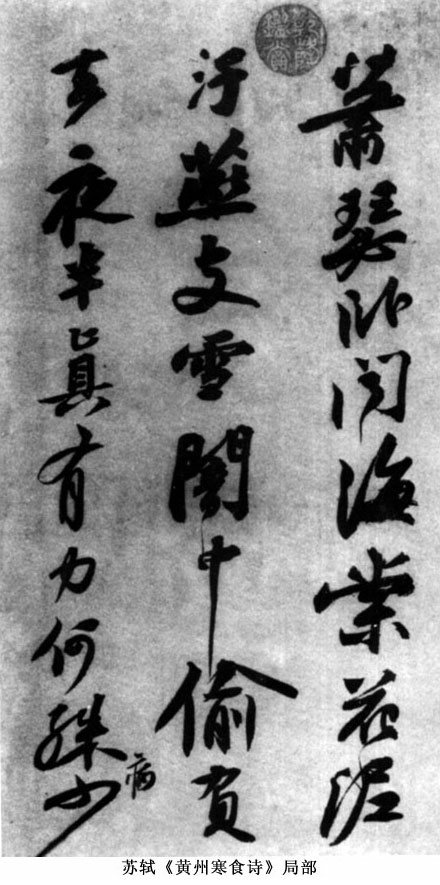 蕭瑟卧聞海棠花泥
汙燕支雪闇中偷負
去夜半真有力何殊少
病
苏轼《黄州寒食诗》局部